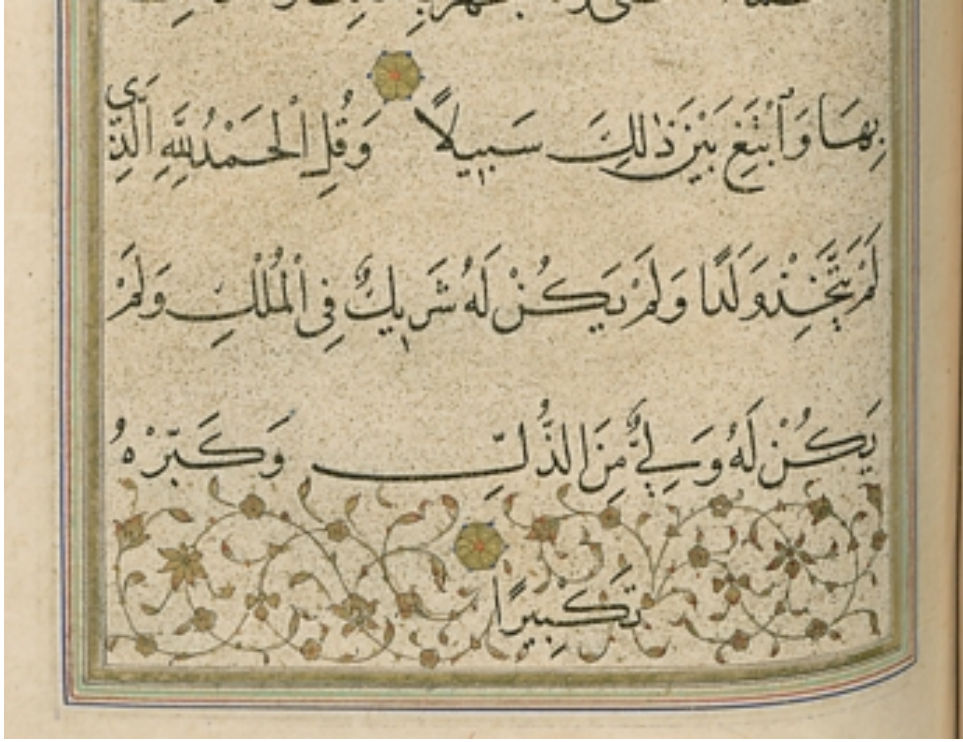 بِهَا وَٱبْتَغِ بَيْنَ ذٰلِكَ سَبِيلًا وَقُلِ الْحَمْدُ لِلَّهِ الَّذِي
لَمْ يَتَّخِذْ وَلَدًا وَلَمْ يَكُنْ لَهُ شَرِيكٌ فِي الْمُلْكِ وَلَمْ
يَكُنْ لَهُ وَلِيٌّ مِنَ الذُّلِّ وَكَبِّرْهُ
تَكْبِيرًا